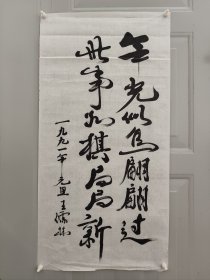 年光似鸟翩翩过
世事如棋局局新
一九九一年 元旦 王